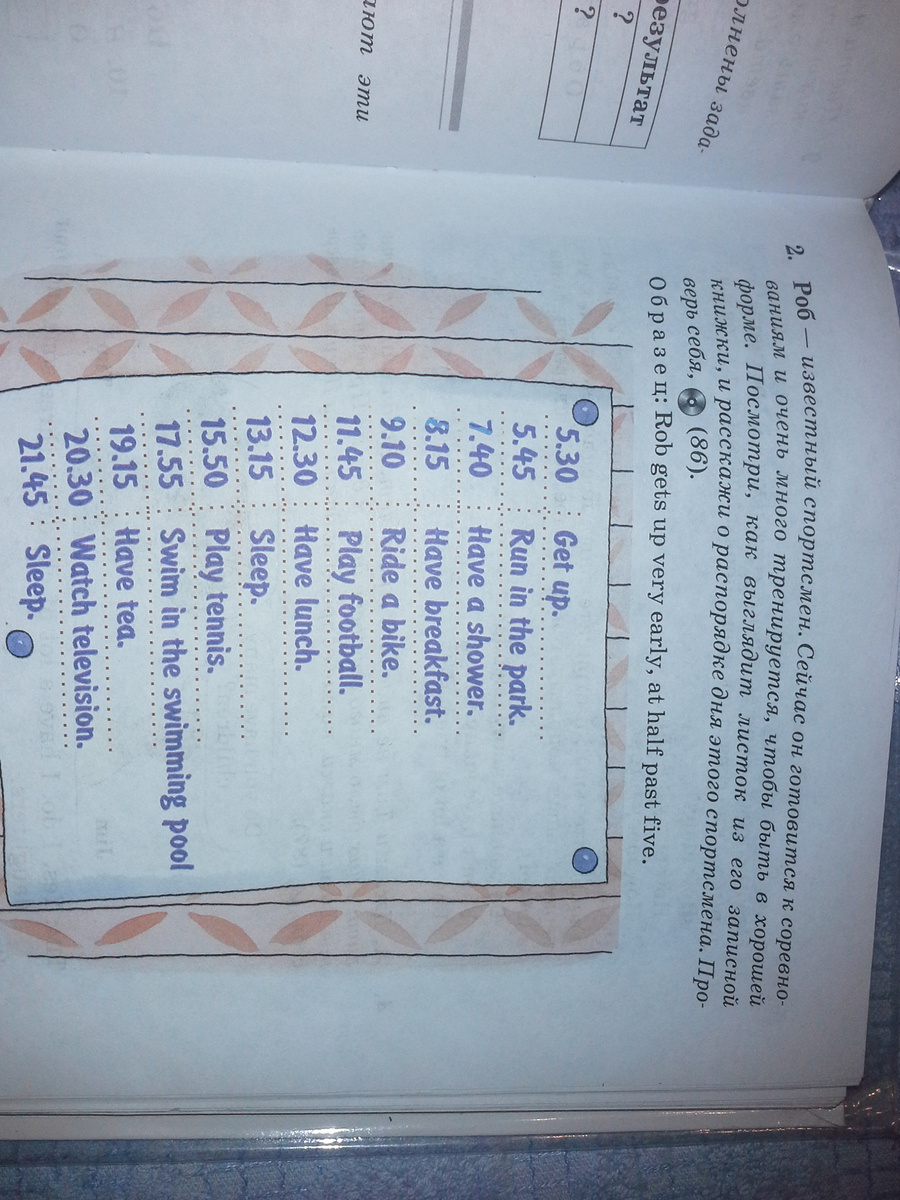 олнены зада-
результат
?
?
ают эти
2. Роб — известный спортсмен. Сейчас он готовится к соревно-
ваниям и очень много тренируется, чтобы быть в хорошей
форме. Посмотри, как выглядит листок из его записной
книжки, и расскажи о распорядке дня этого спортсмена. Про-
верь себя, (86).
Образец: Rob gets up very early, at half past five.
5.30 Get up.
5.45 Run in the park.
7.40 Have a shower.
8.15 Have breakfast.
9.10 Ride a bike.
11.45 Play football.
12.30 Have lunch.
13.15 Sleep.
15.50 Play tennis.
17.55 Swim in the swimming pool
19.15 Have tea.
20.30 Watch television.
21.45 Sleep.